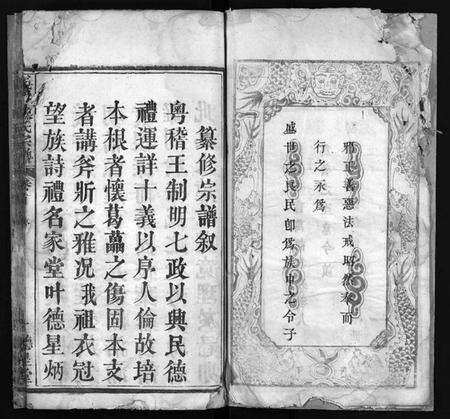 邪正善惡法戒昭然奉而
行之永爲
盛世之良民卽爲族中之令子
纂修宗譜叙
粵稽王制明七政以興民德
禮運詳十義以序人倫故培
本根者懷葛藟之傷固本支
者講斧斨之雅況我祖衣冠
望族詩禮名家堂叶德星炳